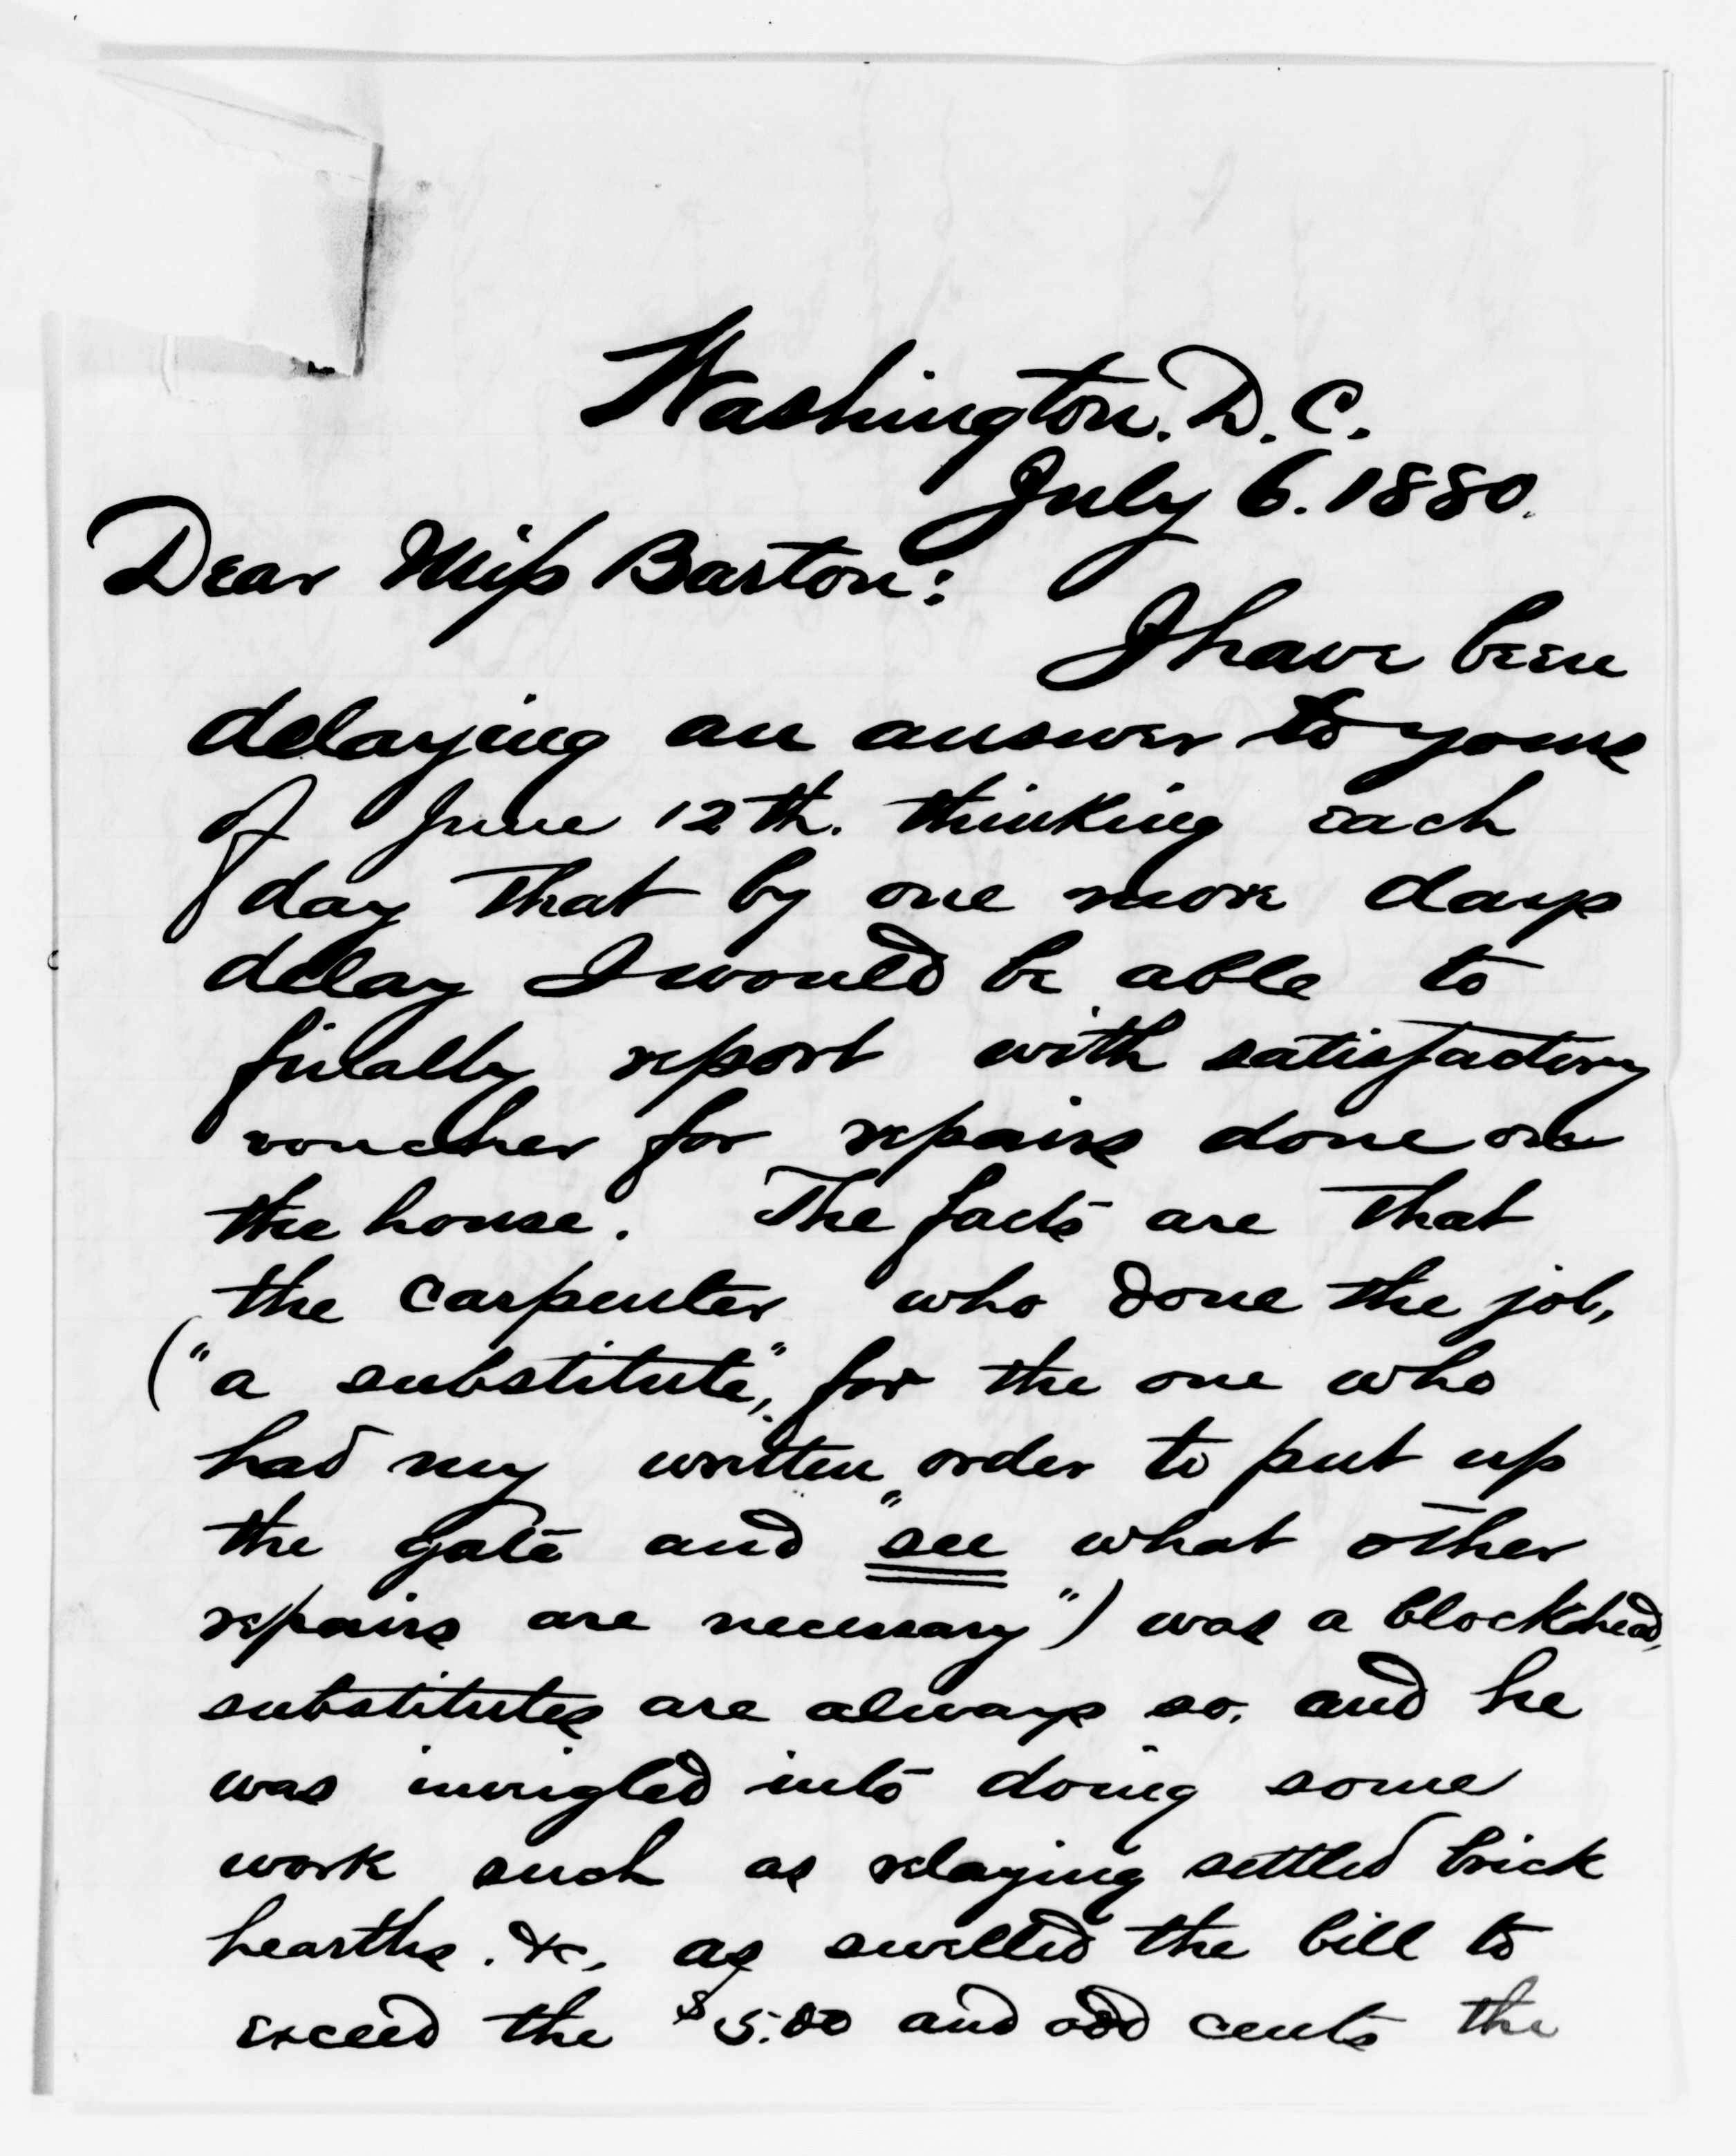 Washington. D. C.
July 6. 1880.
Dear Miss Barton:
I have been
delaying an answer to yours
of June 12th. thinking each
day that by one more days
delay I would be able to
finally report with satisfactory
voucher for repairs done on
the house. The facts are that
the carpenter who done the job,
("a substitute", for the one who
had my written order to put up
the gate and "see what other
repairs are necessary") was a blockhead,
substitutes are always so, and he
was invigled into doing some
work such as relaying settled brick
hearths. &c, as swelled the bill to
exceed the $5.00 and odd cents the